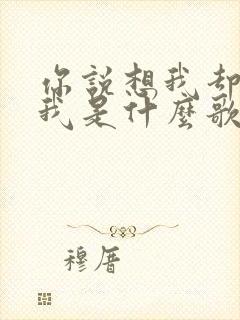 你說想我却
我是什麼歌
穆厝